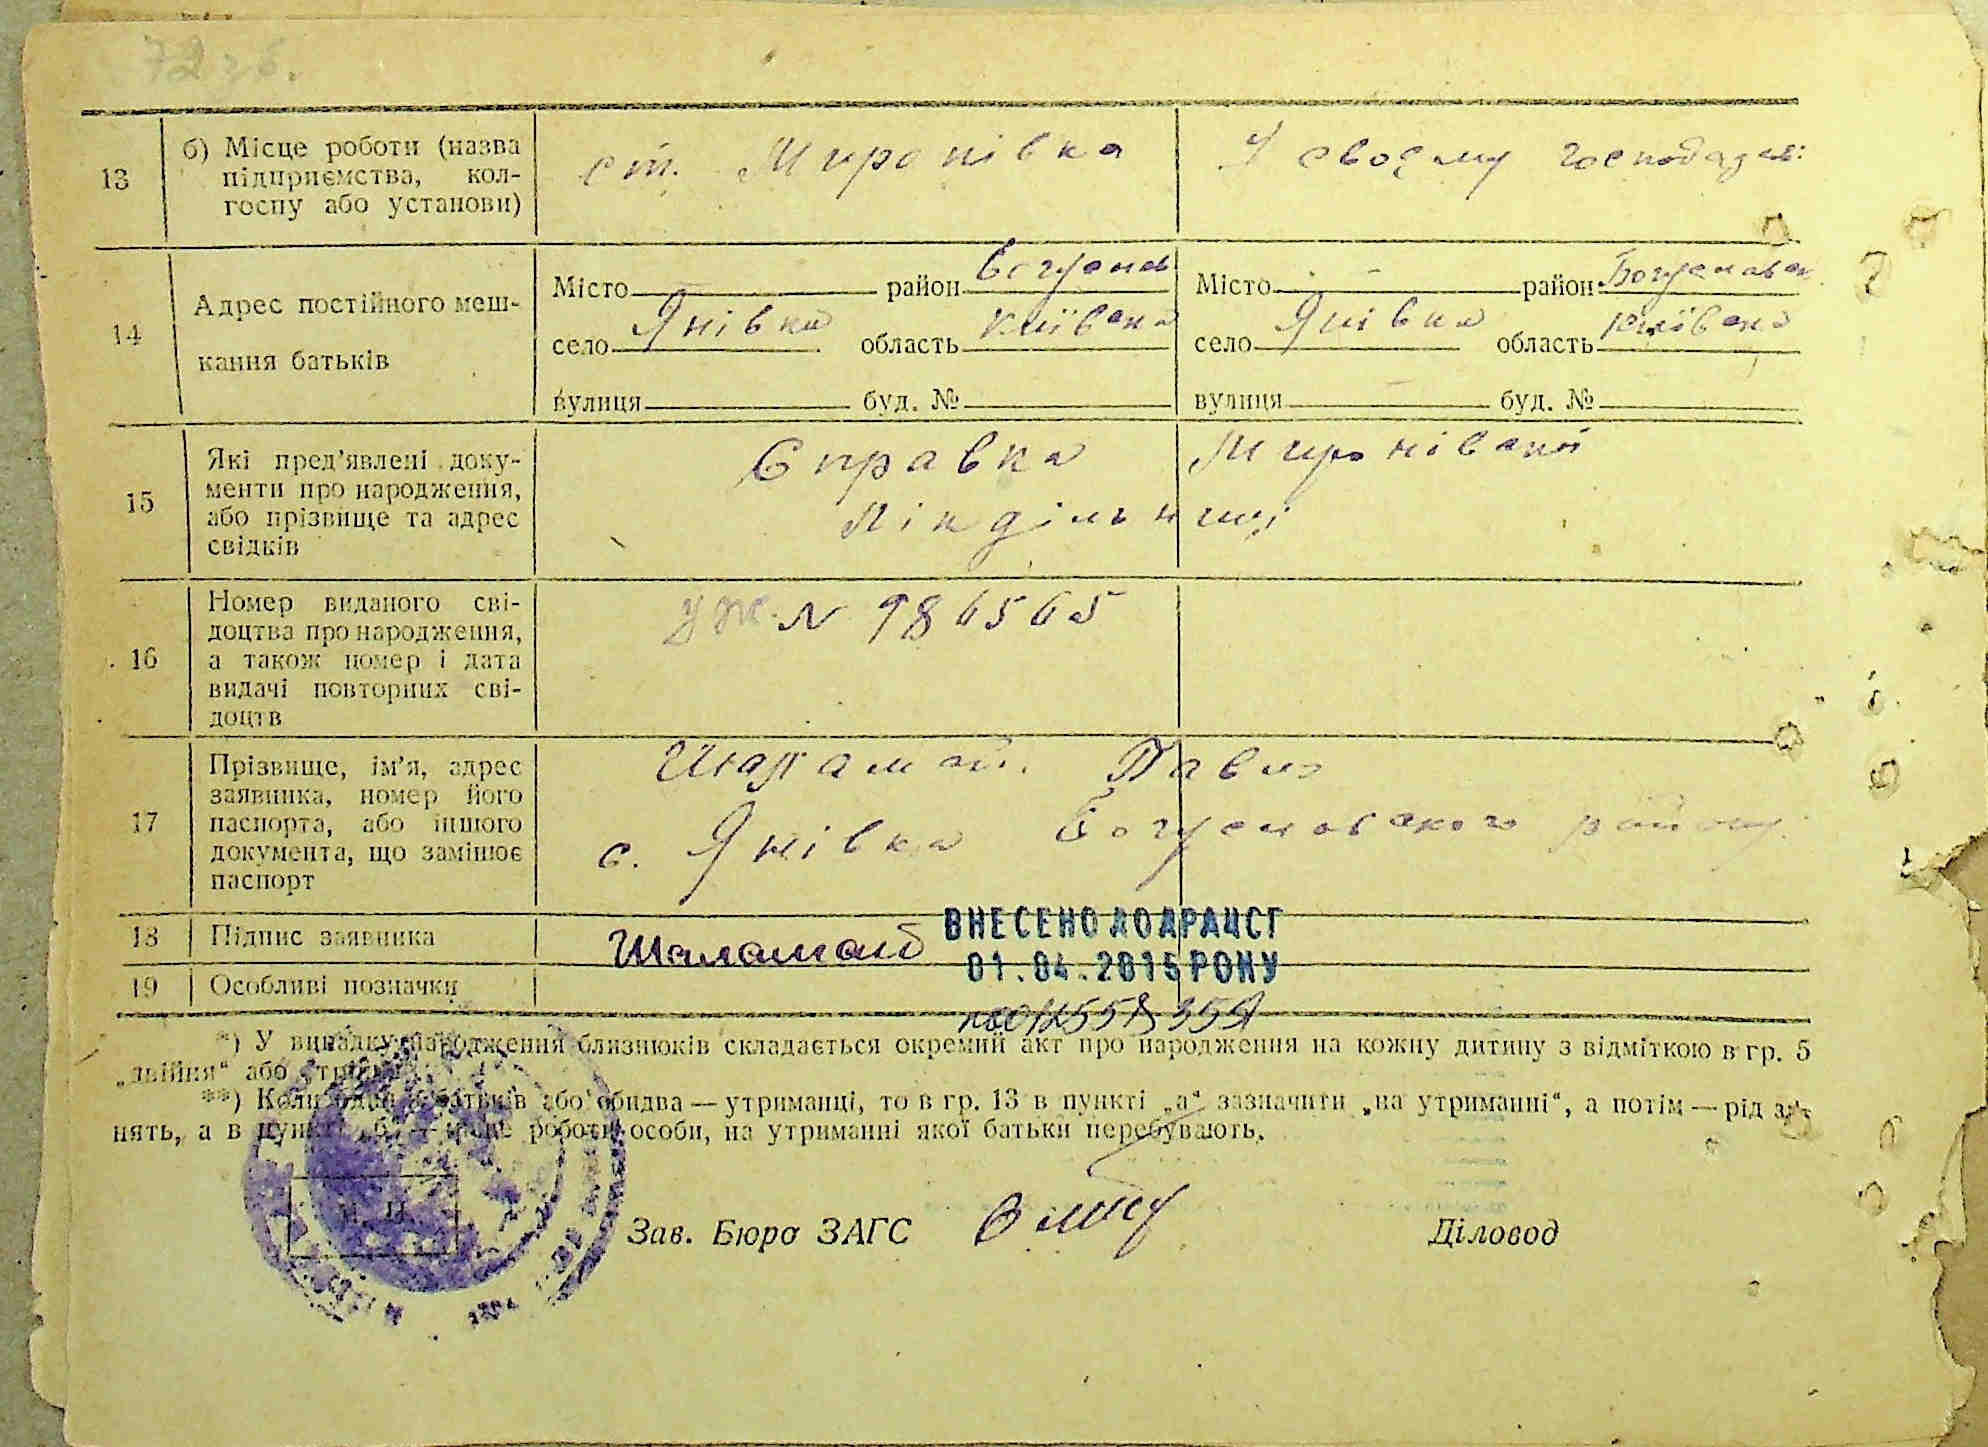 72 зв.
13
б) Місце роботи (назва
підприємства, кол-
госпу або установи)
ст. Миронівка
У своєму господар.
14
Адрес постійного меш-
кання батьків
Місто район Богуслав
село Янівка область Київська
вулиця буд. №
Місто район Богуславськ
село Янівка область Київська
вулиця буд. №
15
Які пред'явлені доку-
менти про народження,
або прізвище та адрес
свідків
Справка Миронівської
лікдільниці
16
Номер виданого сві-
доцтва про народження,
а також номер і дата
видачі повторних сві-
доцтв
УЖ N 986565
17
Прізвище, ім'я, адрес
заявника, номер його
паспорта, або іншого
документа, що замінює
паспорт
Шаламай Павло
с. Янівка Богуславського району
18
Підпис заявника
Шаламай
ВНЕСЕНО ДО ДРАЦСГ
01.04.2015 РОКУ
19
Особливі позначки
*) У випадку народження близнюків складається окремий акт про народження на кожну дитину з відміткою в гр. 5
„двійня“ або „трійня“.
**) Коли один з батьків або обидва — утриманці, то в гр. 13 в пункті „а“ зазначити „на утриманні“, а потім — рід за-
нять, а в пункті „б“ — місце роботи особи, на утриманні якої батьки перебувають.
М. П.
Зав. Бюро ЗАГС
Діловод